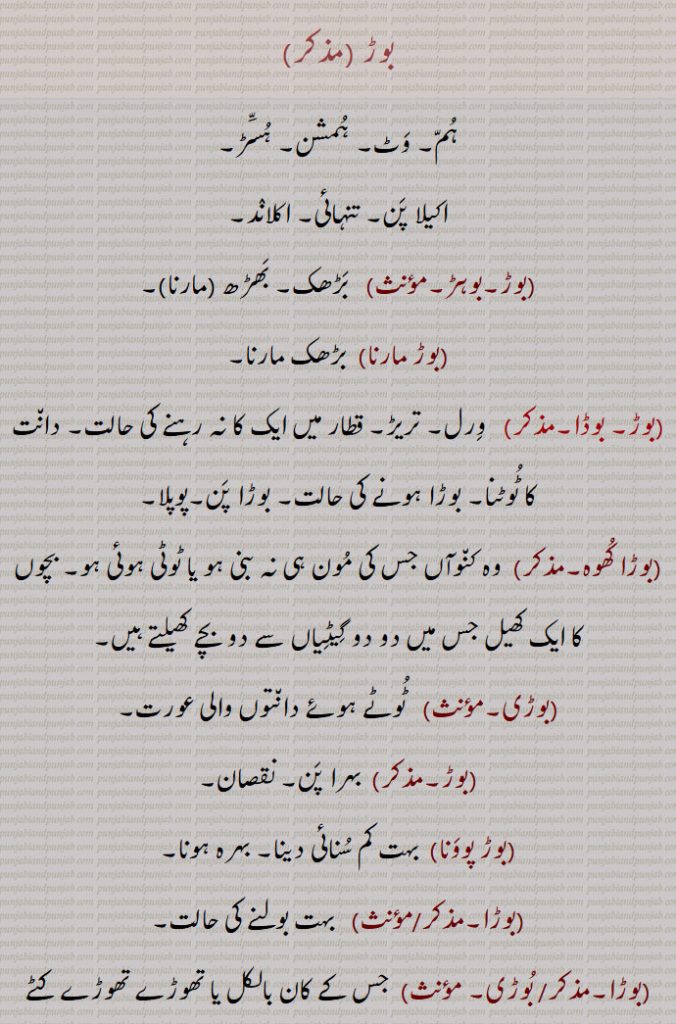 بوڑ (مذکر)
ہُمّ۔ وَٹ۔ ہُمشن۔ ہُسِّڑ۔
اکیلا پَن۔ تنہائی۔ اکلانْد۔
(بوڑ۔بوہڑ۔مؤنث) بَڑھک۔ بَھڑھ (مارنا)۔
(بوڑ مارنا) بڑھک مارنا۔
(بوڑ۔ بوڈا۔مذکر) وِرل۔ تریڑ۔ قطار میں ایک کا نہ رہنے کی حالت۔ دانّت
کا ٹُوٹنا۔ بوڑا ہونے کی حالت۔ بوڑا پَن۔پوپلا۔
(بوڑا کُھوہ۔مذکر) وہ کنّوآں جس کی مُون ہی نہ بنی ہو یا ٹوٹی ہوئی ہو۔ بچوں
کا ایک کھیل جس میں دو دو گِیٹِیاں سے دو بچے کھیلتے ہیں۔
(بوڑی۔مؤنث) ٹُوٹے ہوئے دانّتوں والی عورت۔
(بوڑ۔مذکر) بہرا پَن۔ نقصان۔
(بوڑ پوؤنا) بہت کم سُنائی دینا۔ بہرہ ہونا۔
(بوڑا۔مذکر/مؤنث) بہت بولنے کی حالت۔
(بوڑا۔مذکر/بُوڑی۔ مؤنث) جس کے کان بالکل یا تھوڑے تھوڑے کٹے